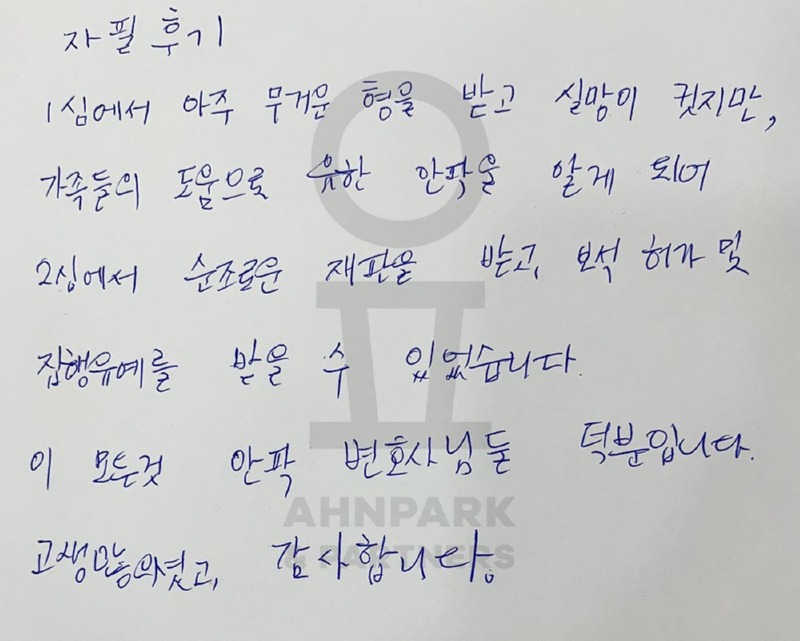 자필 후기
1심에서 아주 무거운 형을 받고 실망이 컸지만,
가족들의 도움으로 유한 안팍을 알게 되어
2심에서 순조로운 재판을 받고, 보석 허가 및
집행유예를 받을 수 있었습니다.
이 모든것 안팍 변호사님들 덕분입니다.
고생많으셨고, 감사합니다.
AHNPARK
& PARTNERS